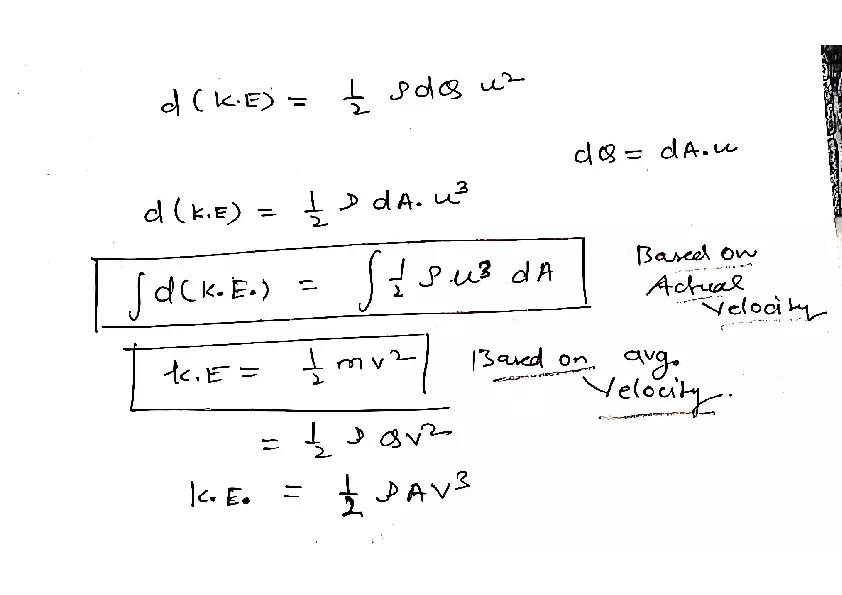 d (K.E) = 1/2 ρ dQ u²
dQ = dA.u
d (K.E) = 1/2 ρ dA. u³
∫ d(K.E.) = ∫ 1/2 ρ.u³ dA
Based on
Actual
Velocity
K.E = 1/2 m v²
Based on avg.
Velocity.
= 1/2 ρ Q v²
K.E. = 1/2 ρ A V³